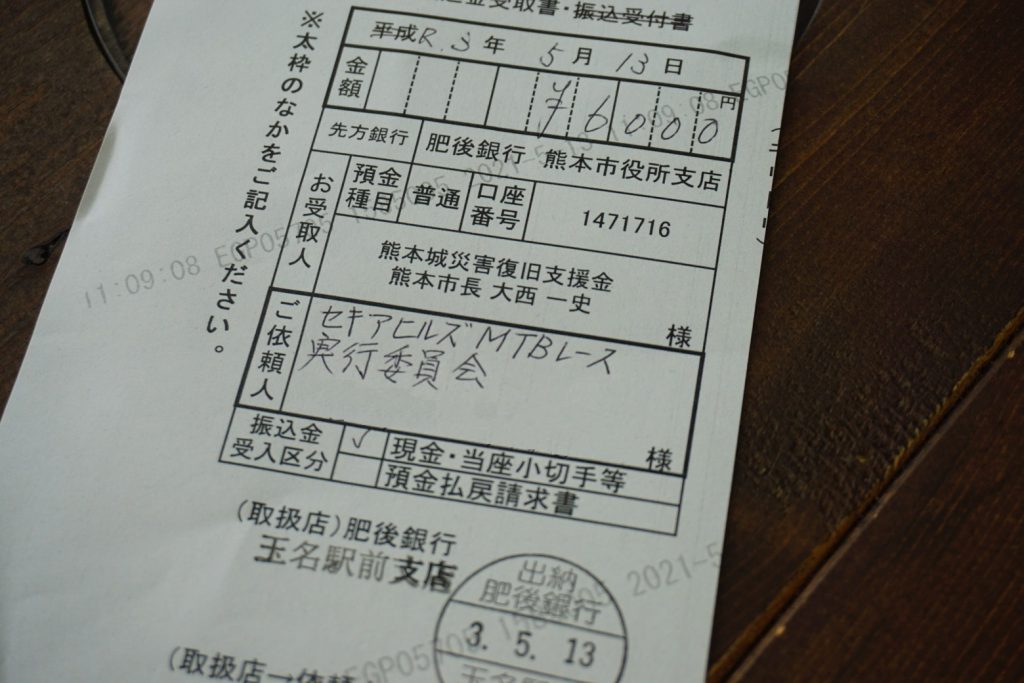 金受取書・振込受付書
※太枠のなかをご記入ください。
平成R.3年 5月 13日
金額 ¥6000円
先方銀行 肥後銀行 熊本市役所支店
お受取人 預金種目 普通 口座番号 1471716
熊本城災害復旧支援金
熊本市長 大西 一史
様
ご依頼人 セキアヒルズMTBレース
実行委員会
様
振込金受入区分 ✓ 現金・当座小切手等
預金払戻請求書
(取扱店)肥後銀行
玉名駅前支店
出納
肥後銀行
3. 5. 13
玉名駅
(取扱店→依頼
11:09:08 EGP057
2021-5